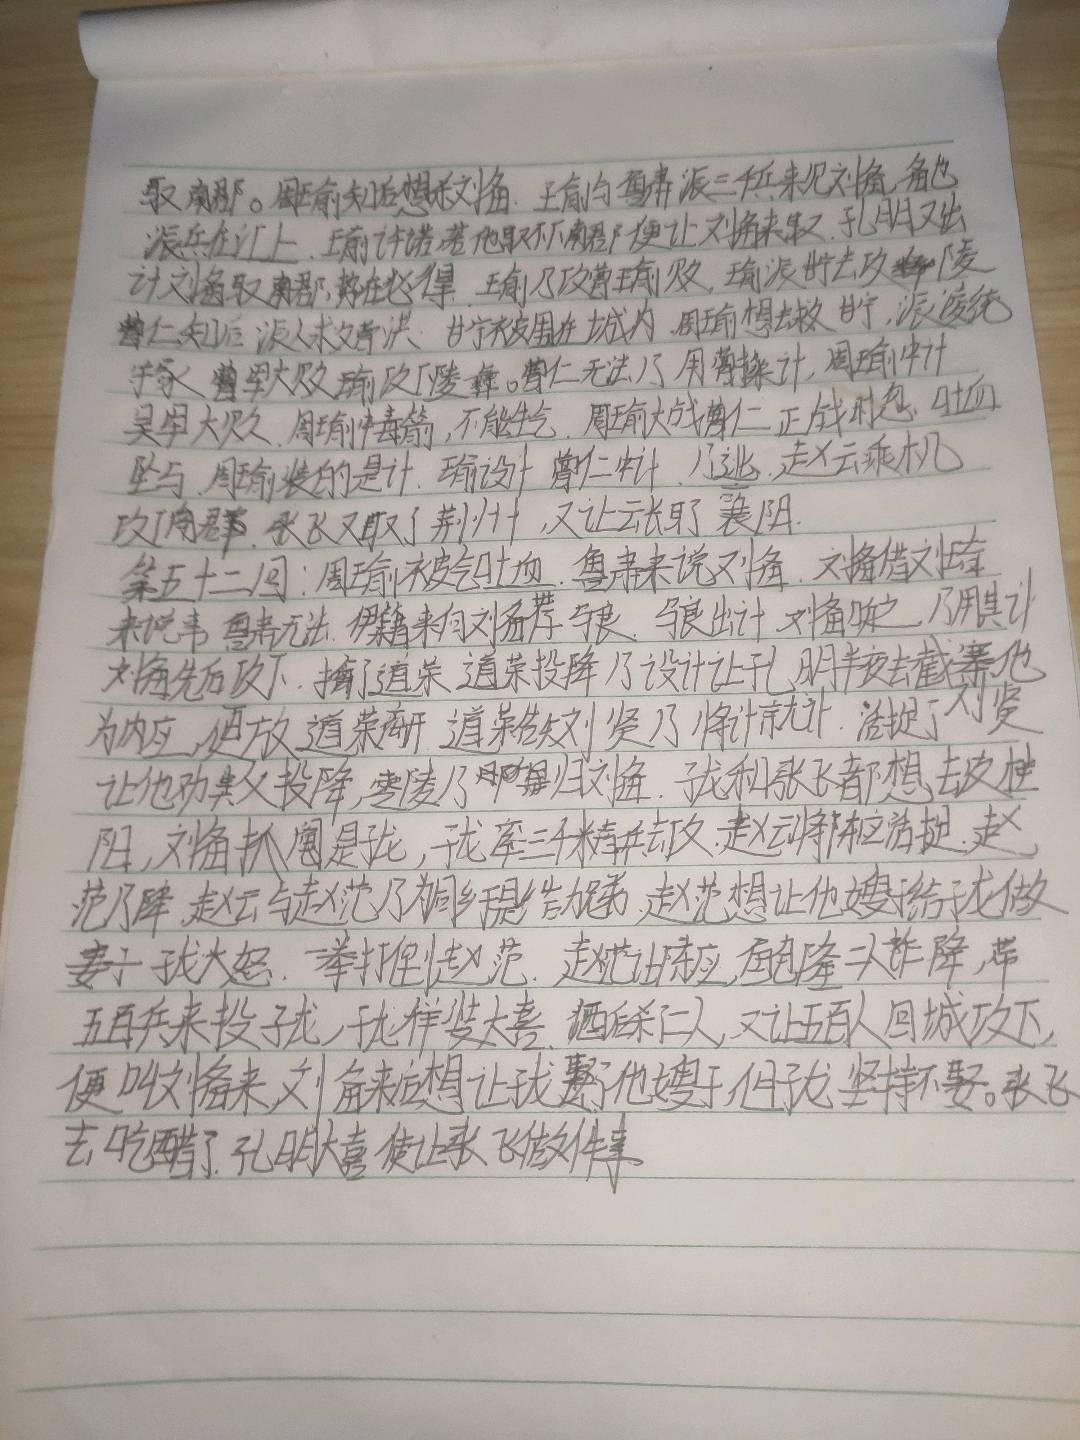 取南郡。周瑜知后想杀刘备。瑜与鲁肃派三千兵来见刘备,备也
派兵在江上,瑜许诺若他取不下南郡便让刘备来取,孔明又出
计刘备取南郡,势在必得,瑜乃攻曹瑜败,瑜派宁去攻陵
曹仁知后派人求文曹洪,甘宁被困在城内,周瑜想去救甘宁,派凌统
曹军大败瑜攻了陵。曹仁无法乃用曹操计,周瑜中计
吴军大败,周瑜中毒箭,不能生气,周瑜大战曹仁正战时忽吐血
坠马,周瑜装的是计,瑜设计曹仁中计,乃逃,赵云乘机
攻了南郡,张飞又取了荆州,又让云长取了襄阳.
第五十二回:周瑜被气吐血,鲁肃来说刘备,刘备借刘琦
来说事鲁肃无法,伊籍来向刘备荐马良,马良出计刘备,乃用其计
刘备先后攻下,擒了道荣道荣投降乃设计让孔明半夜去截寨他
为内应,便放道荣离开道荣告知刘贤乃将计就计,活捉了刘贤
让他劝其父投降,零陵乃归刘备.子龙和张飞都想去攻桂
阳,刘备抓阄是子龙,子龙率三千精兵去攻,赵云将陈应活捉,赵
范乃降,赵云与赵范乃为同乡于是结为兄弟,赵范想让他嫂子给子龙做
妻子子龙大怒,一拳打倒赵范,赵范让陈应,鲍隆二人诈降,带
五百兵来投子龙,子龙佯装大喜,酒后杀二人,又让五百人回城攻下,
便叫刘备来,刘备来后想让子龙娶了他嫂子,但子龙坚持不娶。张飞
去吃醋了,孔明大喜使让张飞做件事